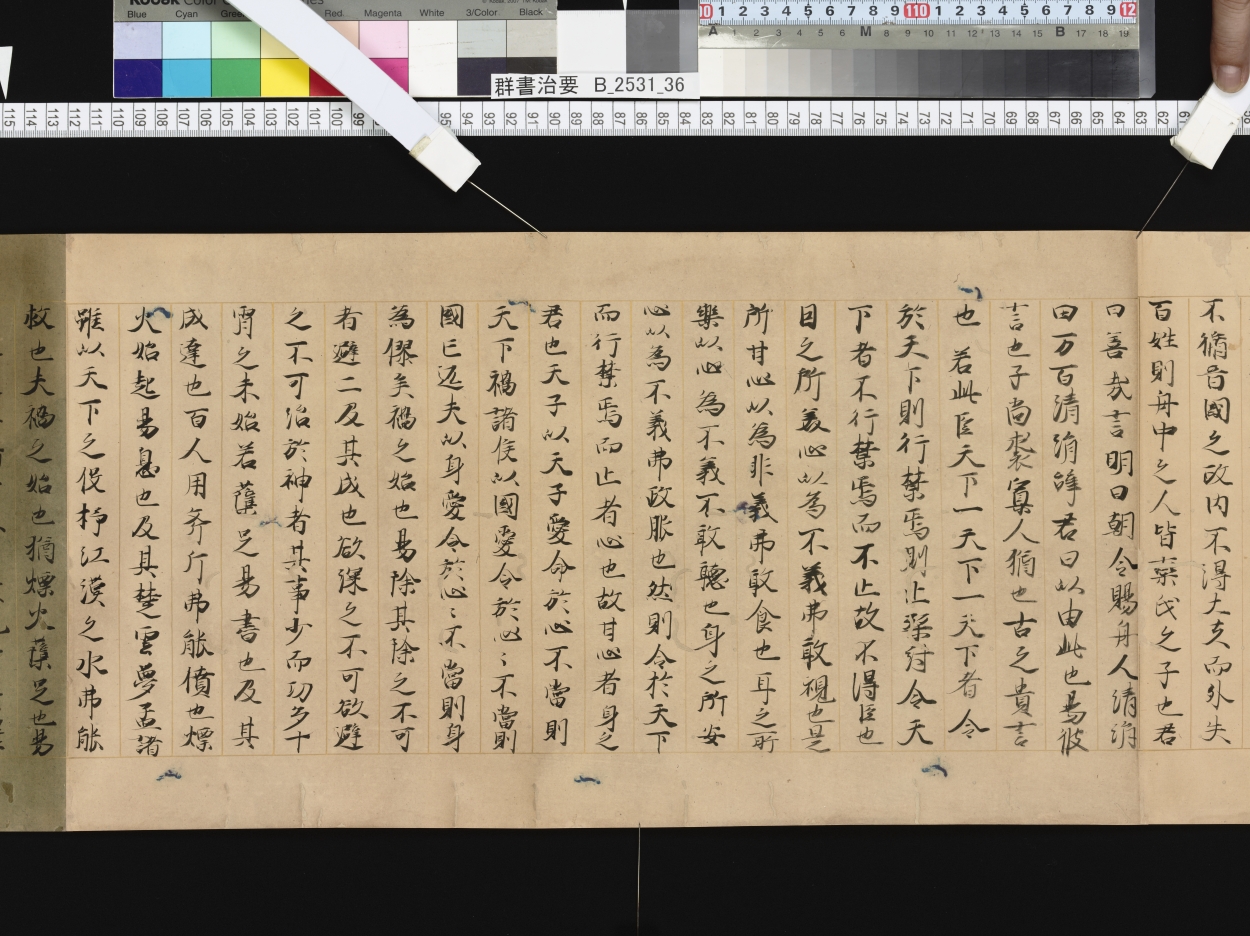 不脩晉國之政内不得大夫而外失
百姓則舟中之人皆欒氏之子也君
曰善哉言明日朝令賜舟人清涓
田万百清涓辞君曰以由此也易彼
言也子尚喪寡人猶也古之貴言
也若此臣天下一天下一天下者令
於天下則行禁焉則止桀紂令天
下者不行禁焉而不止故不得臣也
目之所美心以為不義弗敢視也是
所甘心以為非義弗敢食也耳之所
樂以心為不義不敢聽也身之所安
心以為不義弗敢服也然則令於天下
而行禁焉而止者心也故甘心者身之
君也天子以天子愛命於心不當則
天下禍諸侯以國愛令於心〻不當則
國亡迊夫以身愛令於心〻不當則身
為僇矣禍之始也易除其除之不可
者避二及其成也欲深之不可欲避
之不可治於神者其事少而功多十
霄之未始若蘖足易書也及其
成達也百人用斧斤弗能僨也熛
火始起易息也及具楚雲夢孟諸
雖以天下之伇抒江漢之水弗能
救也夫禍之始也猶熛火蘖足也易
群書治要 B_2531_36